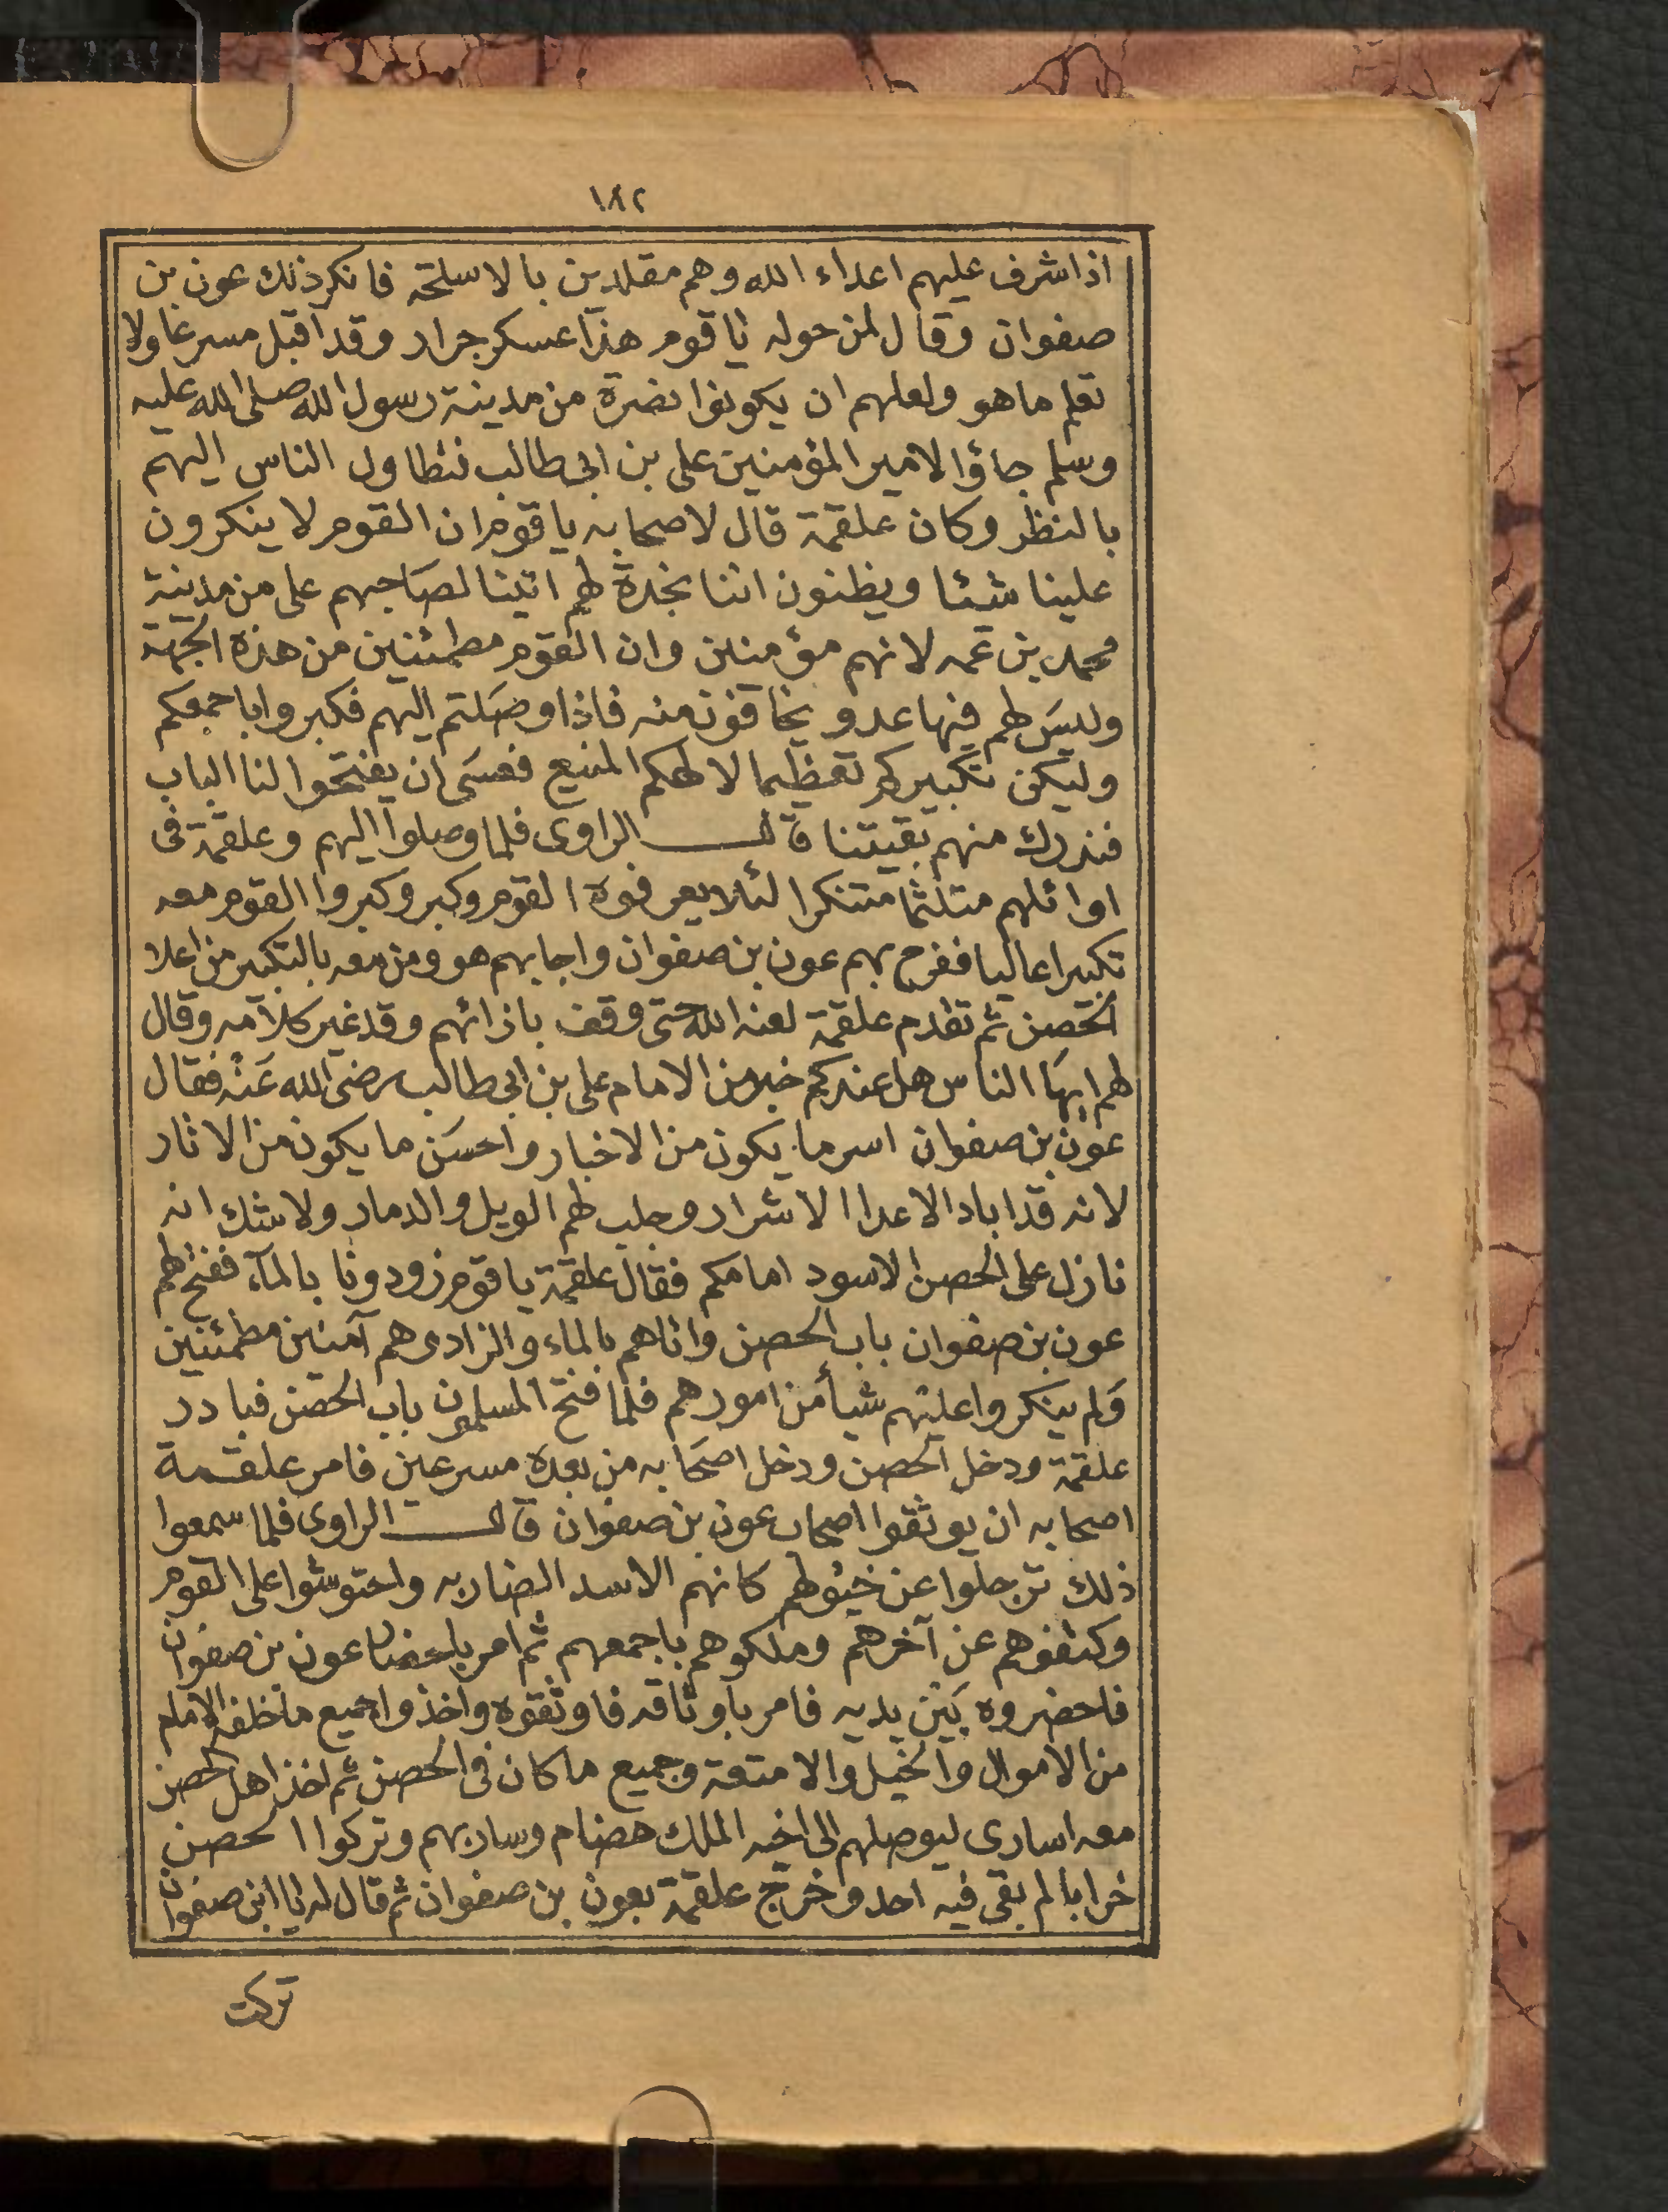 ١٨٢
اذا شرف عليهم اعداء الله وهم مقلدين بالاسلحة فانكر ذلك عون بن
صفوان وقال لمن حوله يا قوم هذا عسكر جرار وقد اقبل مسرعا ولا
نعلم ما هو ولعلهم ان يكونوا نصرة من مدينة رسول الله صلى الله عليه
وسلم جاؤا لامير المؤمنين على بن ابى طالب فتطاول الناس اليهم
بالنظر وكان علقمة قال لاصحابه يا قوم ان القوم لا ينكرون
علينا شيئا ويظنون اننا نجدة لهم اتينا لصاحبهم على من مدينة
محمد بن عمه لانهم مؤمنين وان القوم مطمئنين من هذه الجهة
وليس لهم فيها عدو يخافون منه فاذا وصلتم اليهم فكبروا باجمعكم
وليكن تكبيركم تعظيما لالهكم المنيع فعسى ان يفتحوا لنا الباب
فندرك منهم بقيتنا قال الراوى فلما وصلوا اليهم وعلقمة فى
اوائلهم متلثما متنكرا لئلا يعرفوه القوم وكبر وكبروا القوم معه
تكبيرا عاليا ففرح بهم عون بن صفوان واجابهم هو ومن معه بالتكبير من اعلا
الحصن ثم تقدم علقمة لعنه الله حتى وقف بازائهم وقد غير كلامه وقال
لهم ايها الناس هل عندكم خبر من الامام على بن ابى طالب رضى الله عنه فقال
عون بن صفوان اسر ما يكون من الاخبار واحسن ما يكون من الاثار
لانه قد اباد الاعدا الاشرار وجلب لهم الويل والدمار ولا شك انه
نازل على الحصن الاسود امامكم فقال علقمة يا قوم زودونا بالمآء ففتح لهم
عون بن صفوان باب الحصن واتاهم بالماء والزاد وهم آمنين مطمئنين
ولم ينكروا عليهم شيأ من امورهم فلما فتح المسلمون باب الحصن فبادر
علقمة ودخل الحصن ودخل اصحابه من بعده مسرعين فامر علقمة
اصحابه ان يوثقوا اصحاب عون بن صفوان قال الراوى فلما سمعوا
ذلك ترجلوا عن خيولهم كانهم الاسد الضاريه واحتوشوا على القوم
وكتفوهم عن آخرهم وملكوهم باجمعهم ثم امر باحضار عون بن صفوان
فاحضروه بين يديه فامر باوثاقه فاوثقوه واخذوا جميع ما خلفه الامام
من الاموال والخيل والامتعة وجميع ما كان فى الحصن ثم اخذ اهل الحصن
معه اسارى ليوصلهم الى اخيه الملك هضام وسار بهم وتركوا الحصن
خرابا لم بقى فيه احد وخرج علقمة بعون بن صفوان ثم قال له يا ابن صفوان
تركت